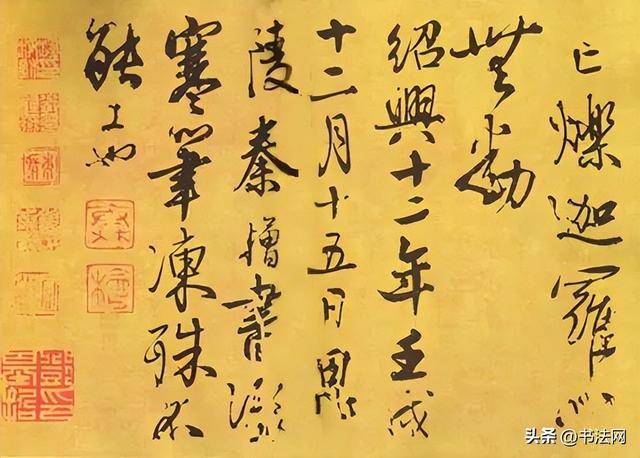 亡爍迦羅心
無動
紹興十二年壬戌
十二月十五日
陵秦檜書
寒筆凍殊不
能工也
头条 @书法网